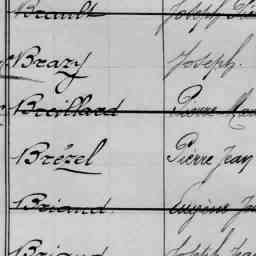 Brault Joseph
Brazy Joseph.
Breillard Pierre
Brézel Pierre Jean
Briand Eugène
Briand Joseph